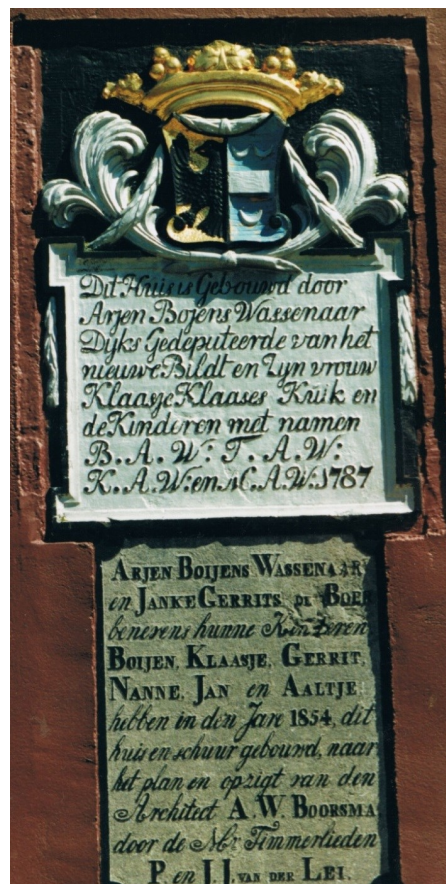 Dit Huis is Gebouwd door
Arjen Bojens Wassenaar
Dijks Gedeputeerde van het
nieuwe Bildt en Zijn vrouw
Klaasje Klaases Kuik en
de Kinderen met namen
B. A. W: T. A. W:
K. A. W: en C. A. W: 1787
ARJEN BOIJENS WASSENAAR
en JANKE GERRITS DE BOER
benevens hunne Kinderen
BOIJEN, KLAASJE, GERRIT,
NANNE, JAN en AALTJE
hebben in den Jare 1854, dit
huis en schuur gebouwd, naar
het plan en opzigt van den
Architect A. W. BOORSMA
door de Mr Timmerlieden
P. en J. J. VAN DER LEI.